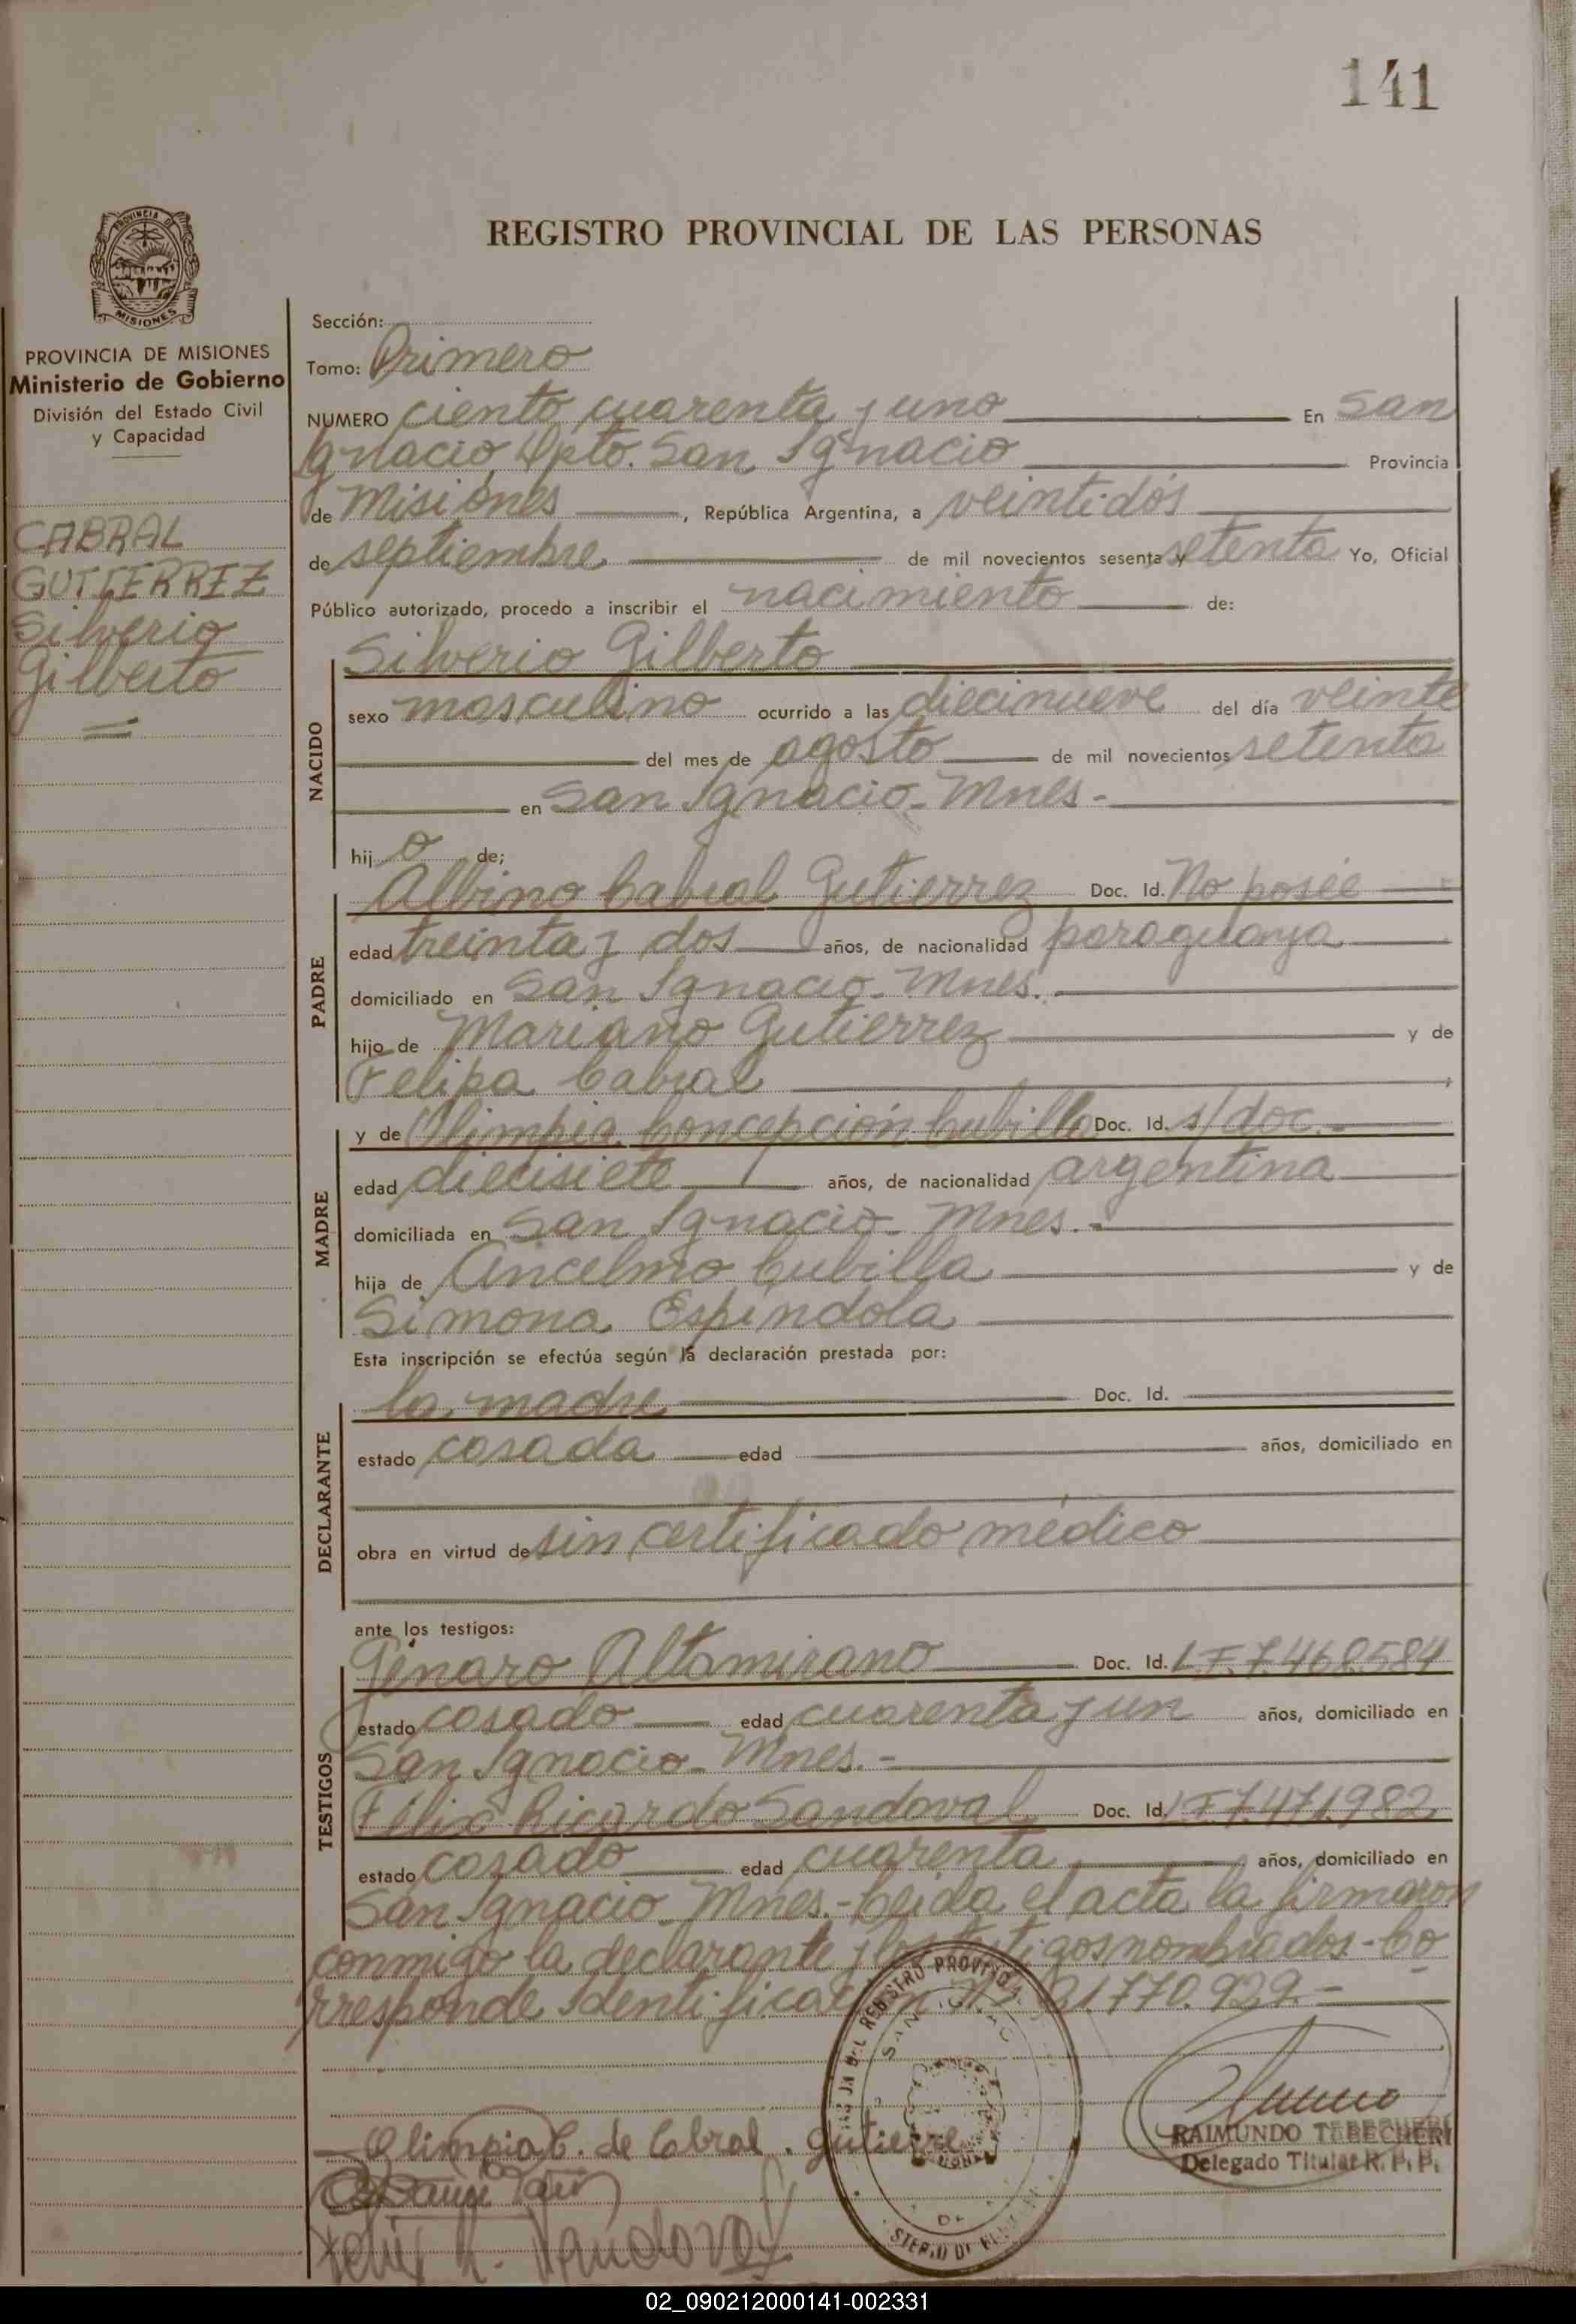 141
REGISTRO PROVINCIAL DE LAS PERSONAS
PROVINCIA DE MISIONES
Ministerio de Gobierno
División del Estado Civil
y Capacidad
CABRAL
GUTIERREZ
Silverio
Gilberto
Sección:
Tomo: Primero
NUMERO ciento cuarenta y uno En San
Ignacio, Dpto. San Ignacio Provincia
de Misiones, República Argentina, a veintidós
de septiembre de mil novecientos sesenta y setenta Yo, Oficial
Público autorizado, procedo a inscribir el nacimiento de:
NACIDO
Silverio Gilberto
sexo masculino ocurrido a las diecinueve del día veinte
del mes de agosto de mil novecientos setenta
en San Ignacio- Mnes-
hijo de;
PADRE
Albino Cabral Gutierrez Doc. Id. No posée
edad treinta y dos años, de nacionalidad paraguaya
domiciliado en San Ignacio- Mnes.
hijo de Mariano Gutierrez y de
Felipa Cabral
MADRE
y de Olimpia Concepción Cubilla Doc. Id. s/doc.-
edad diecisiete años, de nacionalidad argentina
domiciliada en San Ignacio- Mnes.-
hija de Ancelmo Cubilla y de
Simona Espindola
Esta inscripción se efectúa según la declaración prestada por:
DECLARANTE
la madre Doc. Id.
estado casada edad años, domiciliado en
obra en virtud de sin certificado médico
ante los testigos:
TESTIGOS
Genaro Altamirano Doc. Id. L.E. 7.468.584
estado casado edad cuarenta y un años, domiciliado en
San Ignacio- Mnes.-
Félix Ricardo Sandoval Doc. Id. L.E. 7.471.982
estado casado edad cuarenta años, domiciliado en
San Ignacio- Mnes.- Leida el acta la firmaron
conmigo la declarante y los testigos nombrados- Co
rresponde Identificación Nº 21.770.929.-
Olimpia C. de Cabral. Gutierre
RAIMUNDO TEBECHERI
Delegado Titular R. P. P.
Felix R. Sandoval
02_090212000141-002331